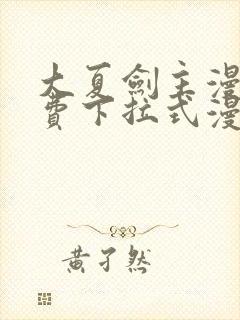 大夏劍主漫
費下拉式漫
黃子然